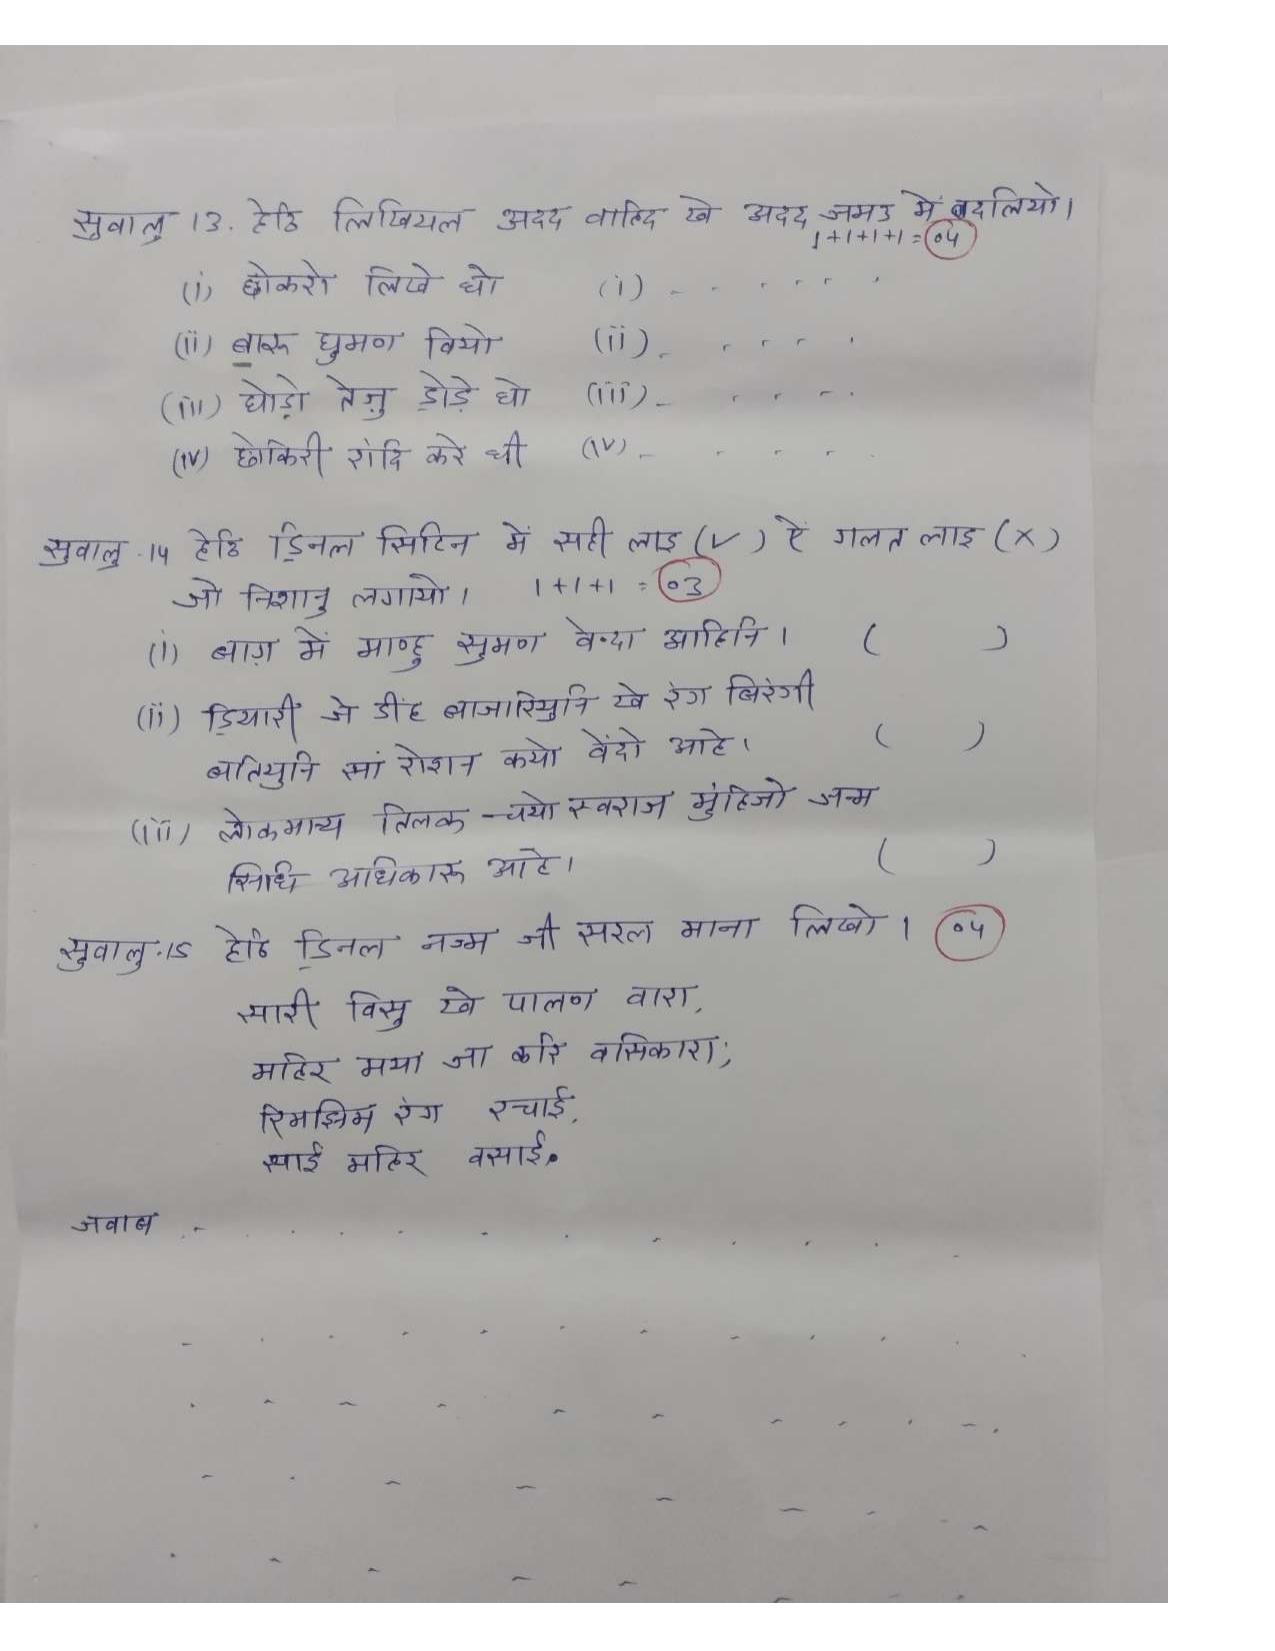 सुवालु 13. हेठि लिखियल अदद वाहिद खे अदद जमउ में बदलियो।
1+1+1+1=04
(i) छोकरो लिखे थो (i) - - - - - - -
(ii) बारू घुमण वियो (ii) - - - - -
(iii) घोड़ो तेज़ु ड॒ोड़े थो (iii) - - - - -
(iv) छोकिरी रांदि करे थी (iv) - - - - -
सुवालु.14 हेठि ड॒िनल सिटिन में सही लाइ (✓) ऐं गलत लाइ (X)
जो निशानु लगायो। 1+1+1 = 03
(i) बाग़ में माण्हू सुमण वेन्दा आहिनि। ( )
(ii) ड॒ियारी जे डींह बाजारियुनि खे रंग बिरंगी
बतियुनि सां रोशन कयो वेंदो आहे। ( )
(iii) लोकमान्य तिलक चयो स्वराज मुंहिजो जन्म
सिधि अधिकारू आहे। ( )
सुवालु.15 हेठि ड॒िनल नज्म जी सरल माना लिखो। 04
सारी विसु खे पालण वारा,
महिर मया जा करि वसिकारा;
रिमझिम रंग रचाई,
साईं महिर वसाई.
जवाब .- - - - - - - - - -